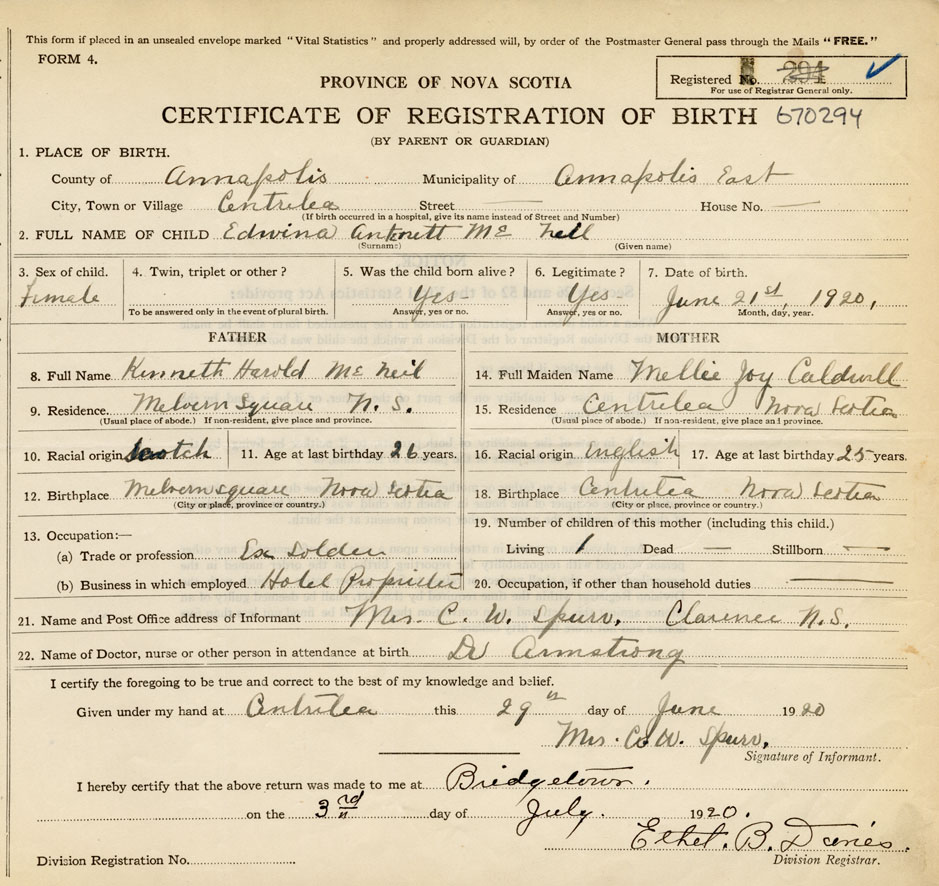 This form if placed in an unsealed envelope marked "Vital Statistics" and properly addressed will, by order of the Postmaster General pass through the Mails "FREE."
FORM 4.
Registered No. 294
For use of Registrar General only.
PROVINCE OF NOVA SCOTIA
CERTIFICATE OF REGISTRATION OF BIRTH 670294
(BY PARENT OR GUARDIAN)
1. PLACE OF BIRTH.
County of Annapolis Municipality of Annapolis East
City, Town or Village Centrelea Street — House No. —
(If birth occurred in a hospital, give its name instead of Street and Number)
2. FULL NAME OF CHILD Edwina Antonett Mc Neil
(Surname) (Given name)
3. Sex of child. 4. Twin, triplet or other? 5. Was the child born alive? 6. Legitimate? 7. Date of birth.
Female Yes Yes June 21st, 1920,
To be answered only in the event of plural birth. Answer, yes or no. Answer, yes or no. Month, day, year.
FATHER MOTHER
8. Full Name Kenneth Harold Mc Neil 14. Full Maiden Name Mellie Joy Caldwell
9. Residence. Melvern Square N. S. 15. Residence Centrelea Nova Scotia
(Usual place of abode.) If non-resident, give place and province. (Usual place of abode.) If non-resident, give place and province.
10. Racial origin Scotch 11. Age at last birthday 26 years. 16. Racial origin English 17. Age at last birthday 25 years.
12. Birthplace Melvernsquare Nova Scotia 18. Birthplace Centrelea Nova Scotia
(City or place, province or country.) (City or place, province or country.)
13. Occupation:— 19. Number of children of this mother (including this child.)
(a) Trade or profession Ex Solder Living 1 Dead — Stillborn —
(b) Business in which employed Hotel Proprieter 20. Occupation, if other than household duties —
21. Name and Post Office address of Informant Mrs. C. W. Spurr, Clarence N.S.
22. Name of Doctor, nurse or other person in attendance at birth Dr Armstrong
I certify the foregoing to be true and correct to the best of my knowledge and belief.
Given under my hand at Centrelea this 29th day of June 1920
Mrs. C. W. Spurr,
Signature of Informant.
I hereby certify that the above return was made to me at Bridgetown.
on the 3rd day of July. 1920.
Ethel. B. Davies.
Division Registration No. Division Registrar.